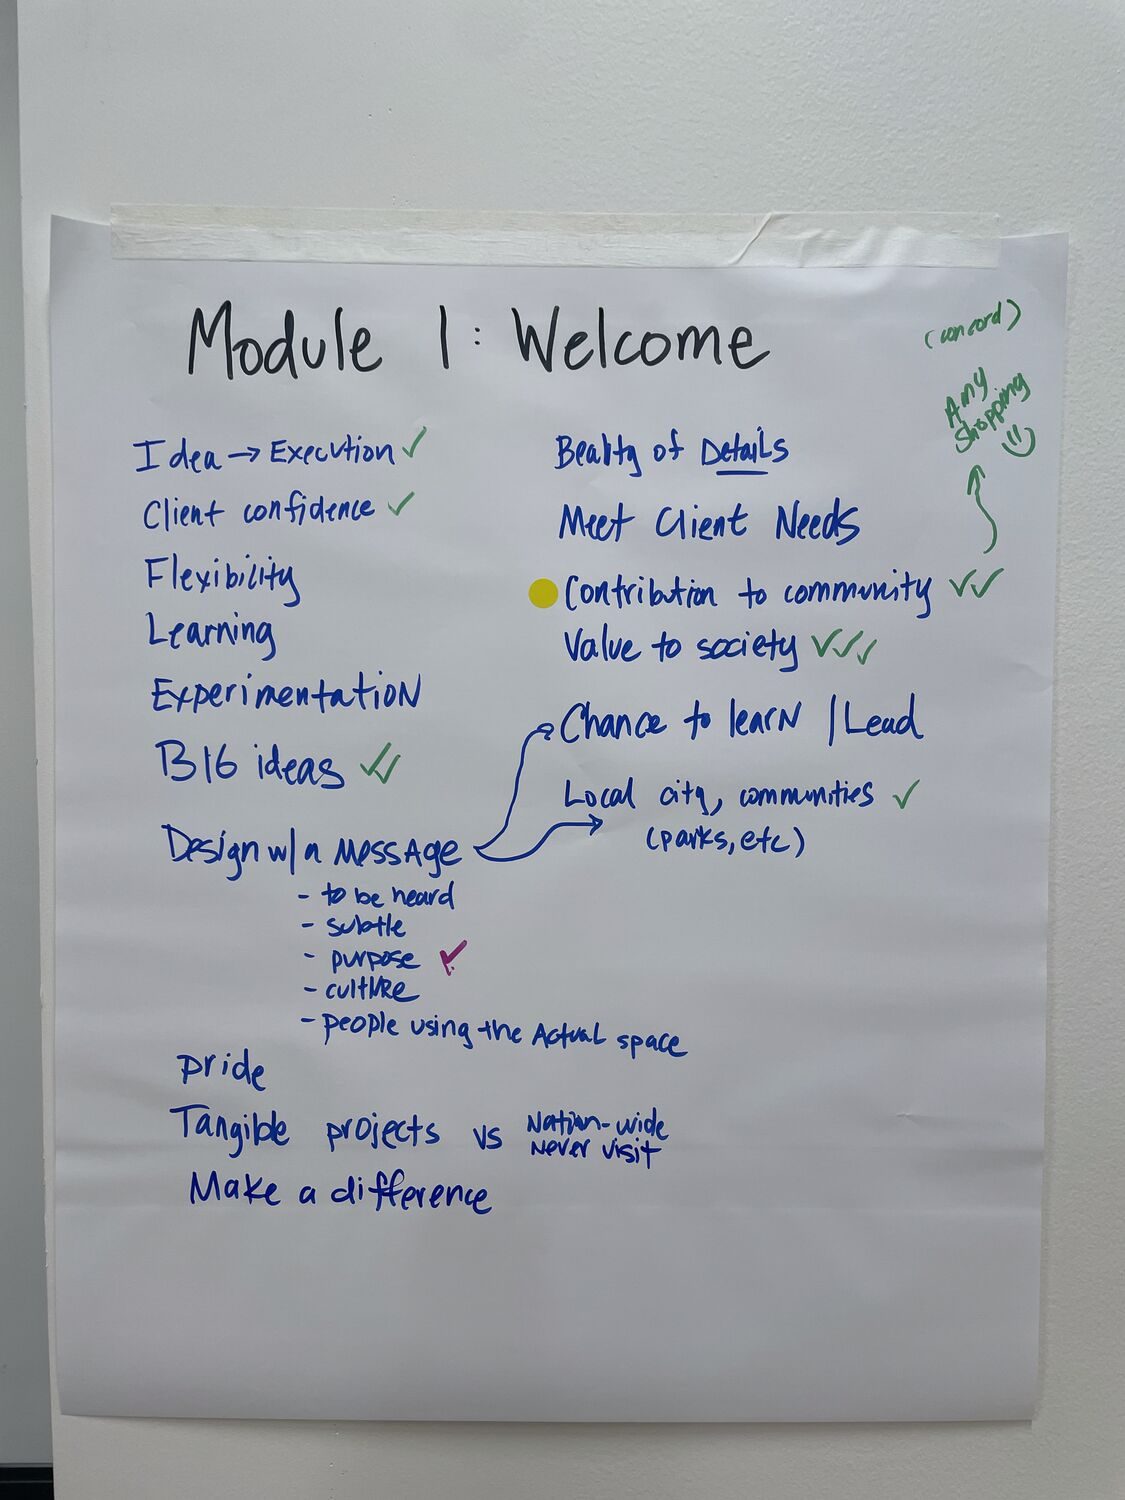 Module 1: Welcome
(concord)
Amy
shopping
Idea → Execution ✓
Client confidence ✓
Flexibility
Learning
Experimentation
BIG ideas ✓✓
Design w/ a message
- to be heard
- subtle
- purpose ✓
- culture
- people using the Actual space
pride
Tangible projects vs Nation-wide
never visit
Make a difference
of Details
Meet Client Needs
Contribution to community ✓✓
Value to society ✓✓✓
Chance to learn / Lead
Local city, communities ✓
(parks, etc)